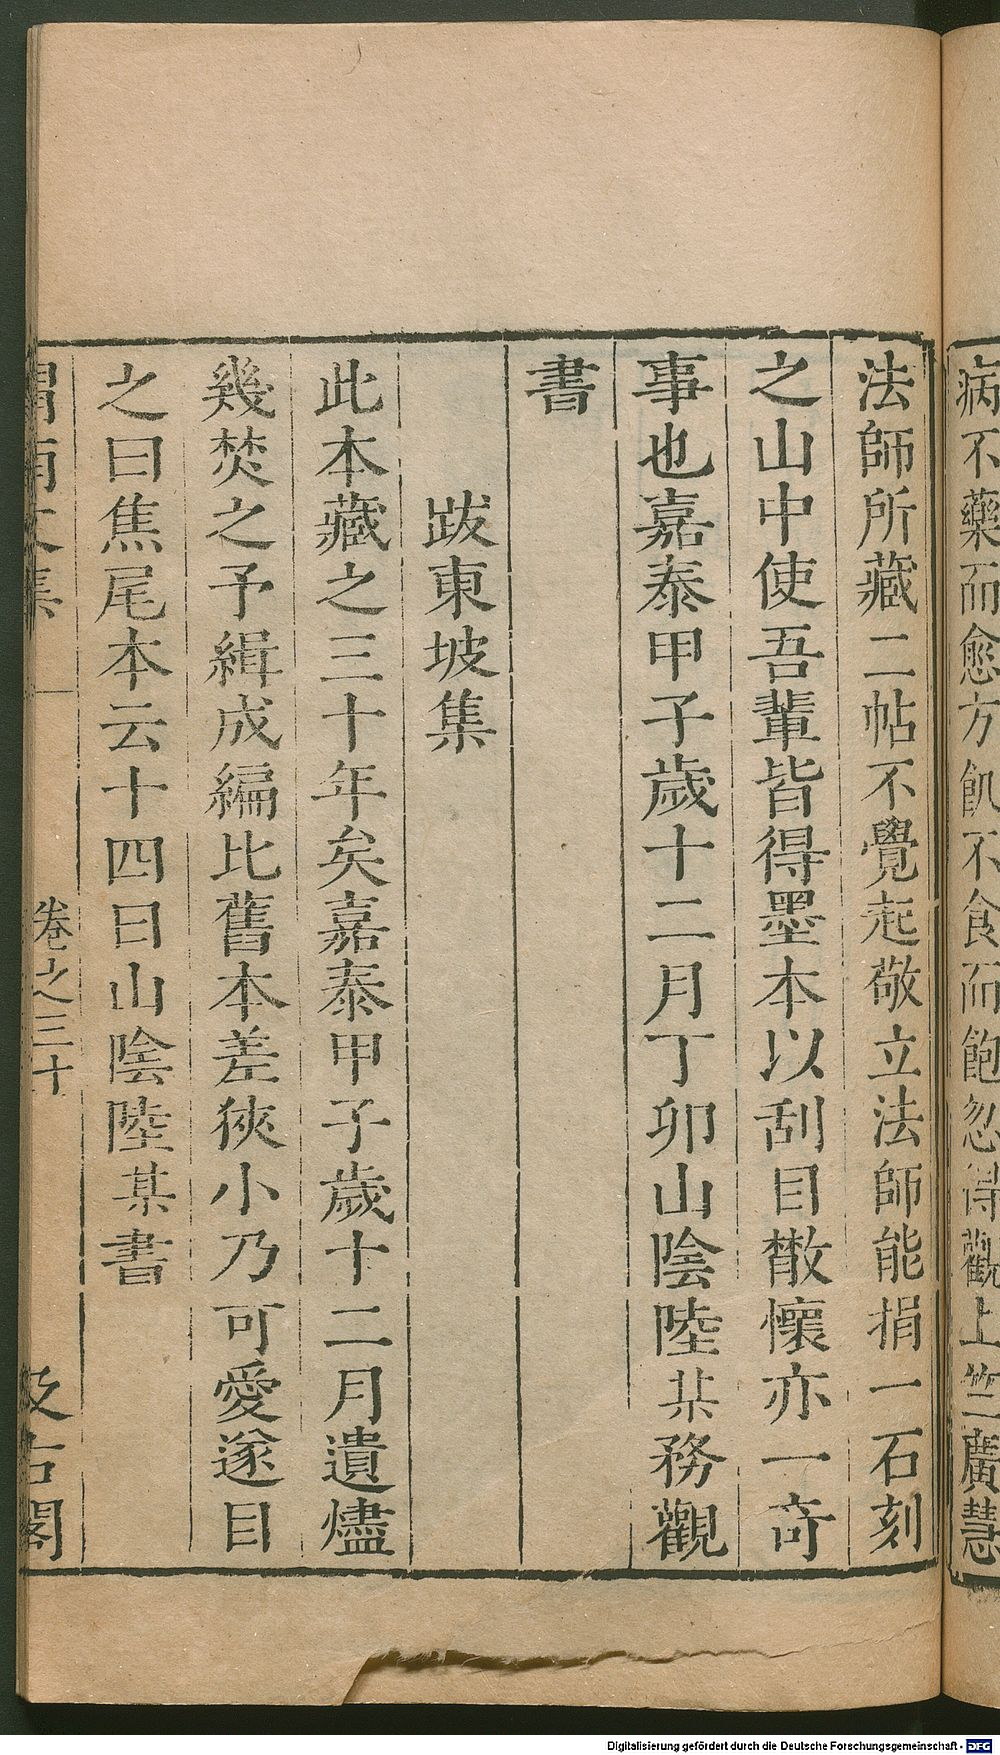 病不藥而愈方飢不食而飽忽得觀上竺廣慧
法師所藏二帖不覺起敬立法師能捐一石刻
之山中使吾輩皆得墨本以刮目散懷亦一奇
事也嘉泰甲子歲十二月丁卯山陰陸某務觀
書
跋東坡集
此本藏之三十年矣嘉泰甲子歲十二月遺燼
幾焚之予緝成編比舊本差狹小乃可愛遂目
之曰焦尾本云十四日山陰陸某書
渭南文集 卷之三十 汲古閣
Digitalisierung gefördert durch die Deutsche Forschungsgemeinschaft - DFG